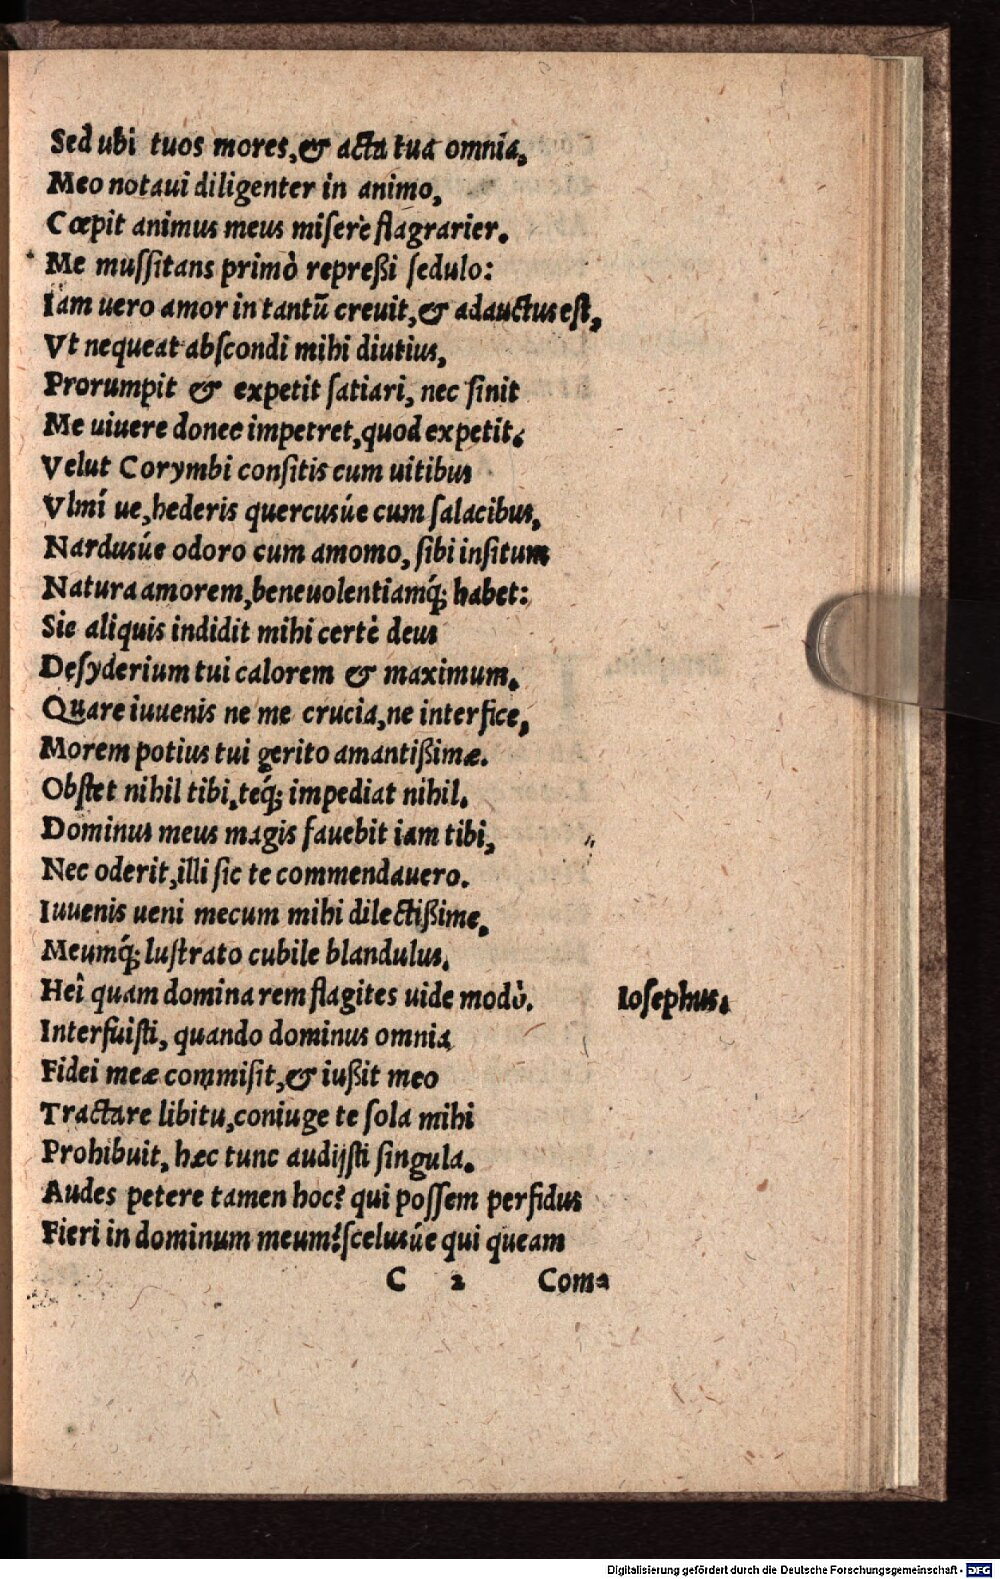 Sed ubi tuos mores, & acta tua omnia,
Meo notaui diligenter in animo,
Cœpit animus meus miserè flagrarier.
Me muſſitans primò repreßi ſedulo:
Iam uero amor in tantū creuit, & adauctus eſt,
Vt nequeat abſcondi mihi diutius,
Prorumpit & expetit ſatiari, nec ſinit
Me uiuere donec impetret, quod expetit.
Velut Corymbi conſitis cum uitibus
Vlmí ue, hederis quercusúe cum ſalacibus,
Nardusúe odoro cum amomo, ſibi inſitum
Natura amorem, beneuolentiamq́; habet:
Sic aliquis indidit mihi certè deus
Deſyderium tui calorem & maximum.
Quare iuuenis ne me crucia, ne interfice,
Morem potius tui gerito amantißimæ.
Obſtet nihil tibi, teq́; impediat nihil.
Dominus meus magis fauebit iam tibi,
Nec oderit, illi ſic te commendauero.
Iuuenis ueni mecum mihi dilectißime,
Meumq́; luſtrato cubile blandulus.
Heî quam domina rem flagites uide modò. Ioſephus.
Interfuiſti, quando dominus omnia
Fidei meæ commiſit, & iußit meo
Tractare libitu, coniuge te ſola mihi
Prohibuit, hæc tunc audijſti ſingula.
Audes petere tamen hoc? qui poſſem perfidus
Fieri in dominum meum? ſcelusúe qui queam
C 2 Coma
Digitalisierung gefördert durch die Deutsche Forschungsgemeinschaft - DFG